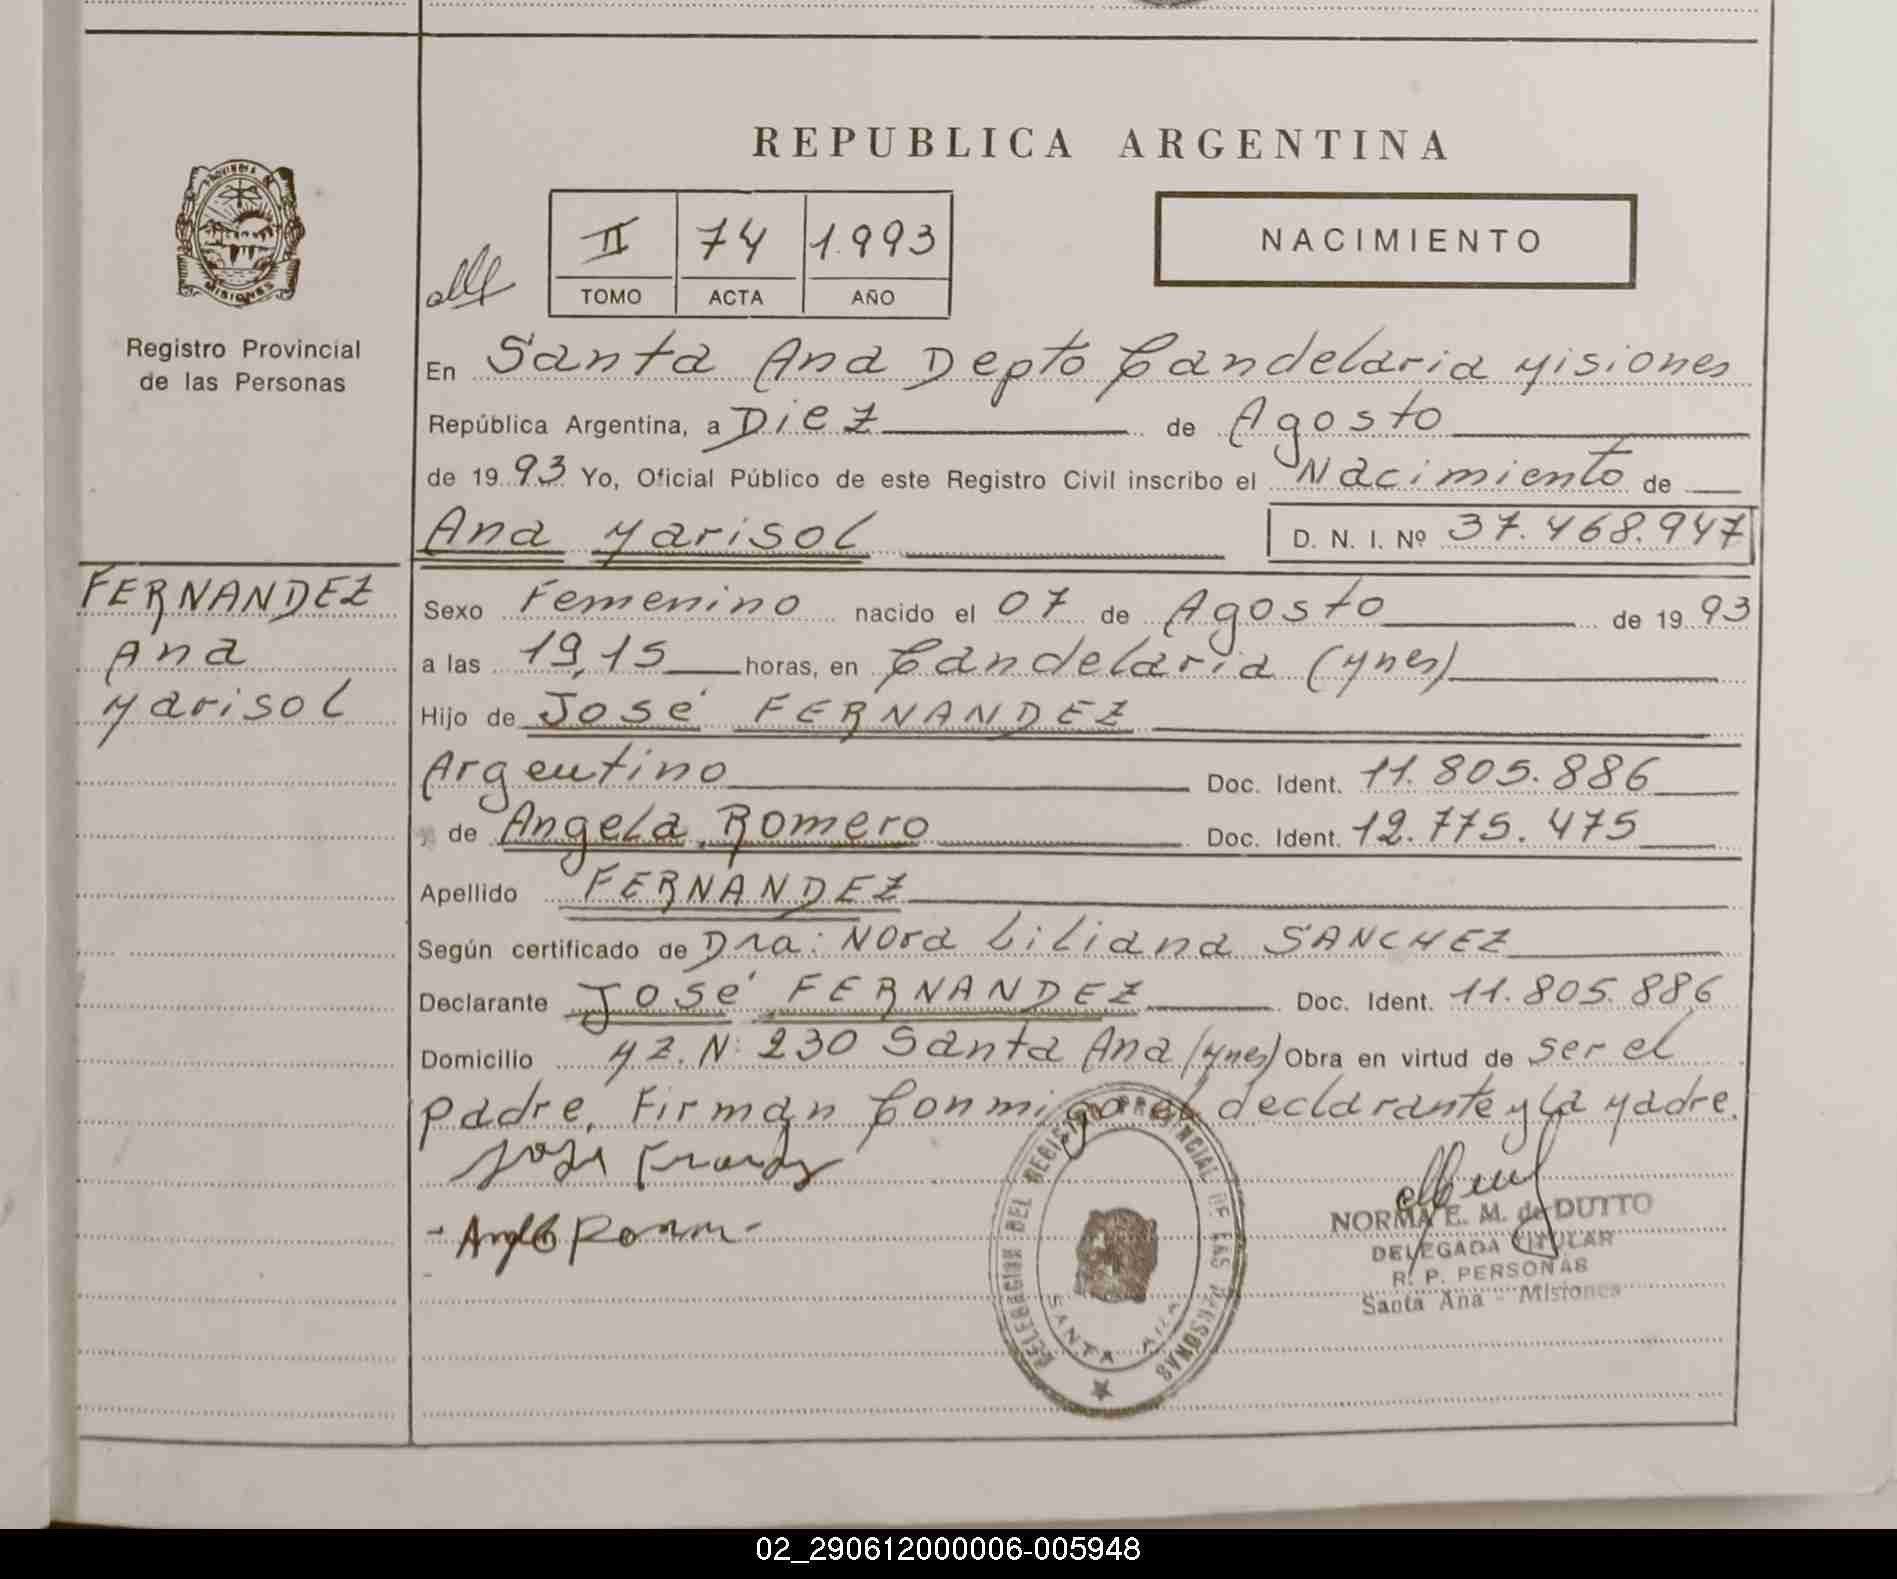 REPUBLICA ARGENTINA
PROVINCIA DE
MISIONES
Registro Provincial
de las Personas
II 74 1.993
TOMO ACTA AÑO
NACIMIENTO
En Santa Ana Depto Candelaria Misiones
República Argentina, a Diez de Agosto
de 1993 Yo, Oficial Público de este Registro Civil inscribo el Nacimiento de
Ana Marisol D. N. I. Nº 37.468.947
FERNANDEZ
Ana
Marisol
Sexo Femenino nacido el 07 de Agosto de 1993
a las 19,15 horas, en Candelaria (Mnes)
Hijo de José FERNANDEZ
Argentino Doc. Ident. 11.805.886
y de Angela Romero Doc. Ident. 12.775.475
Apellido FERNANDEZ
Según certificado de Dra: Nora Liliana SANCHEZ
Declarante José FERNANDEZ Doc. Ident. 11.805.886
Domicilio MZ. N: 230 Santa Ana (Mnes) Obra en virtud de ser el
padre, Firman Conmigo el declarante y la Madre.
DELEGACION DEL REGISTRO PROVINCIAL DE LAS PERSONAS
SANTA ANA
NORMA E. M. de DUTTO
DELEGADA TITULAR
R. P. PERSONAS
Santa Ana - Misiones
02_290612000006-005948